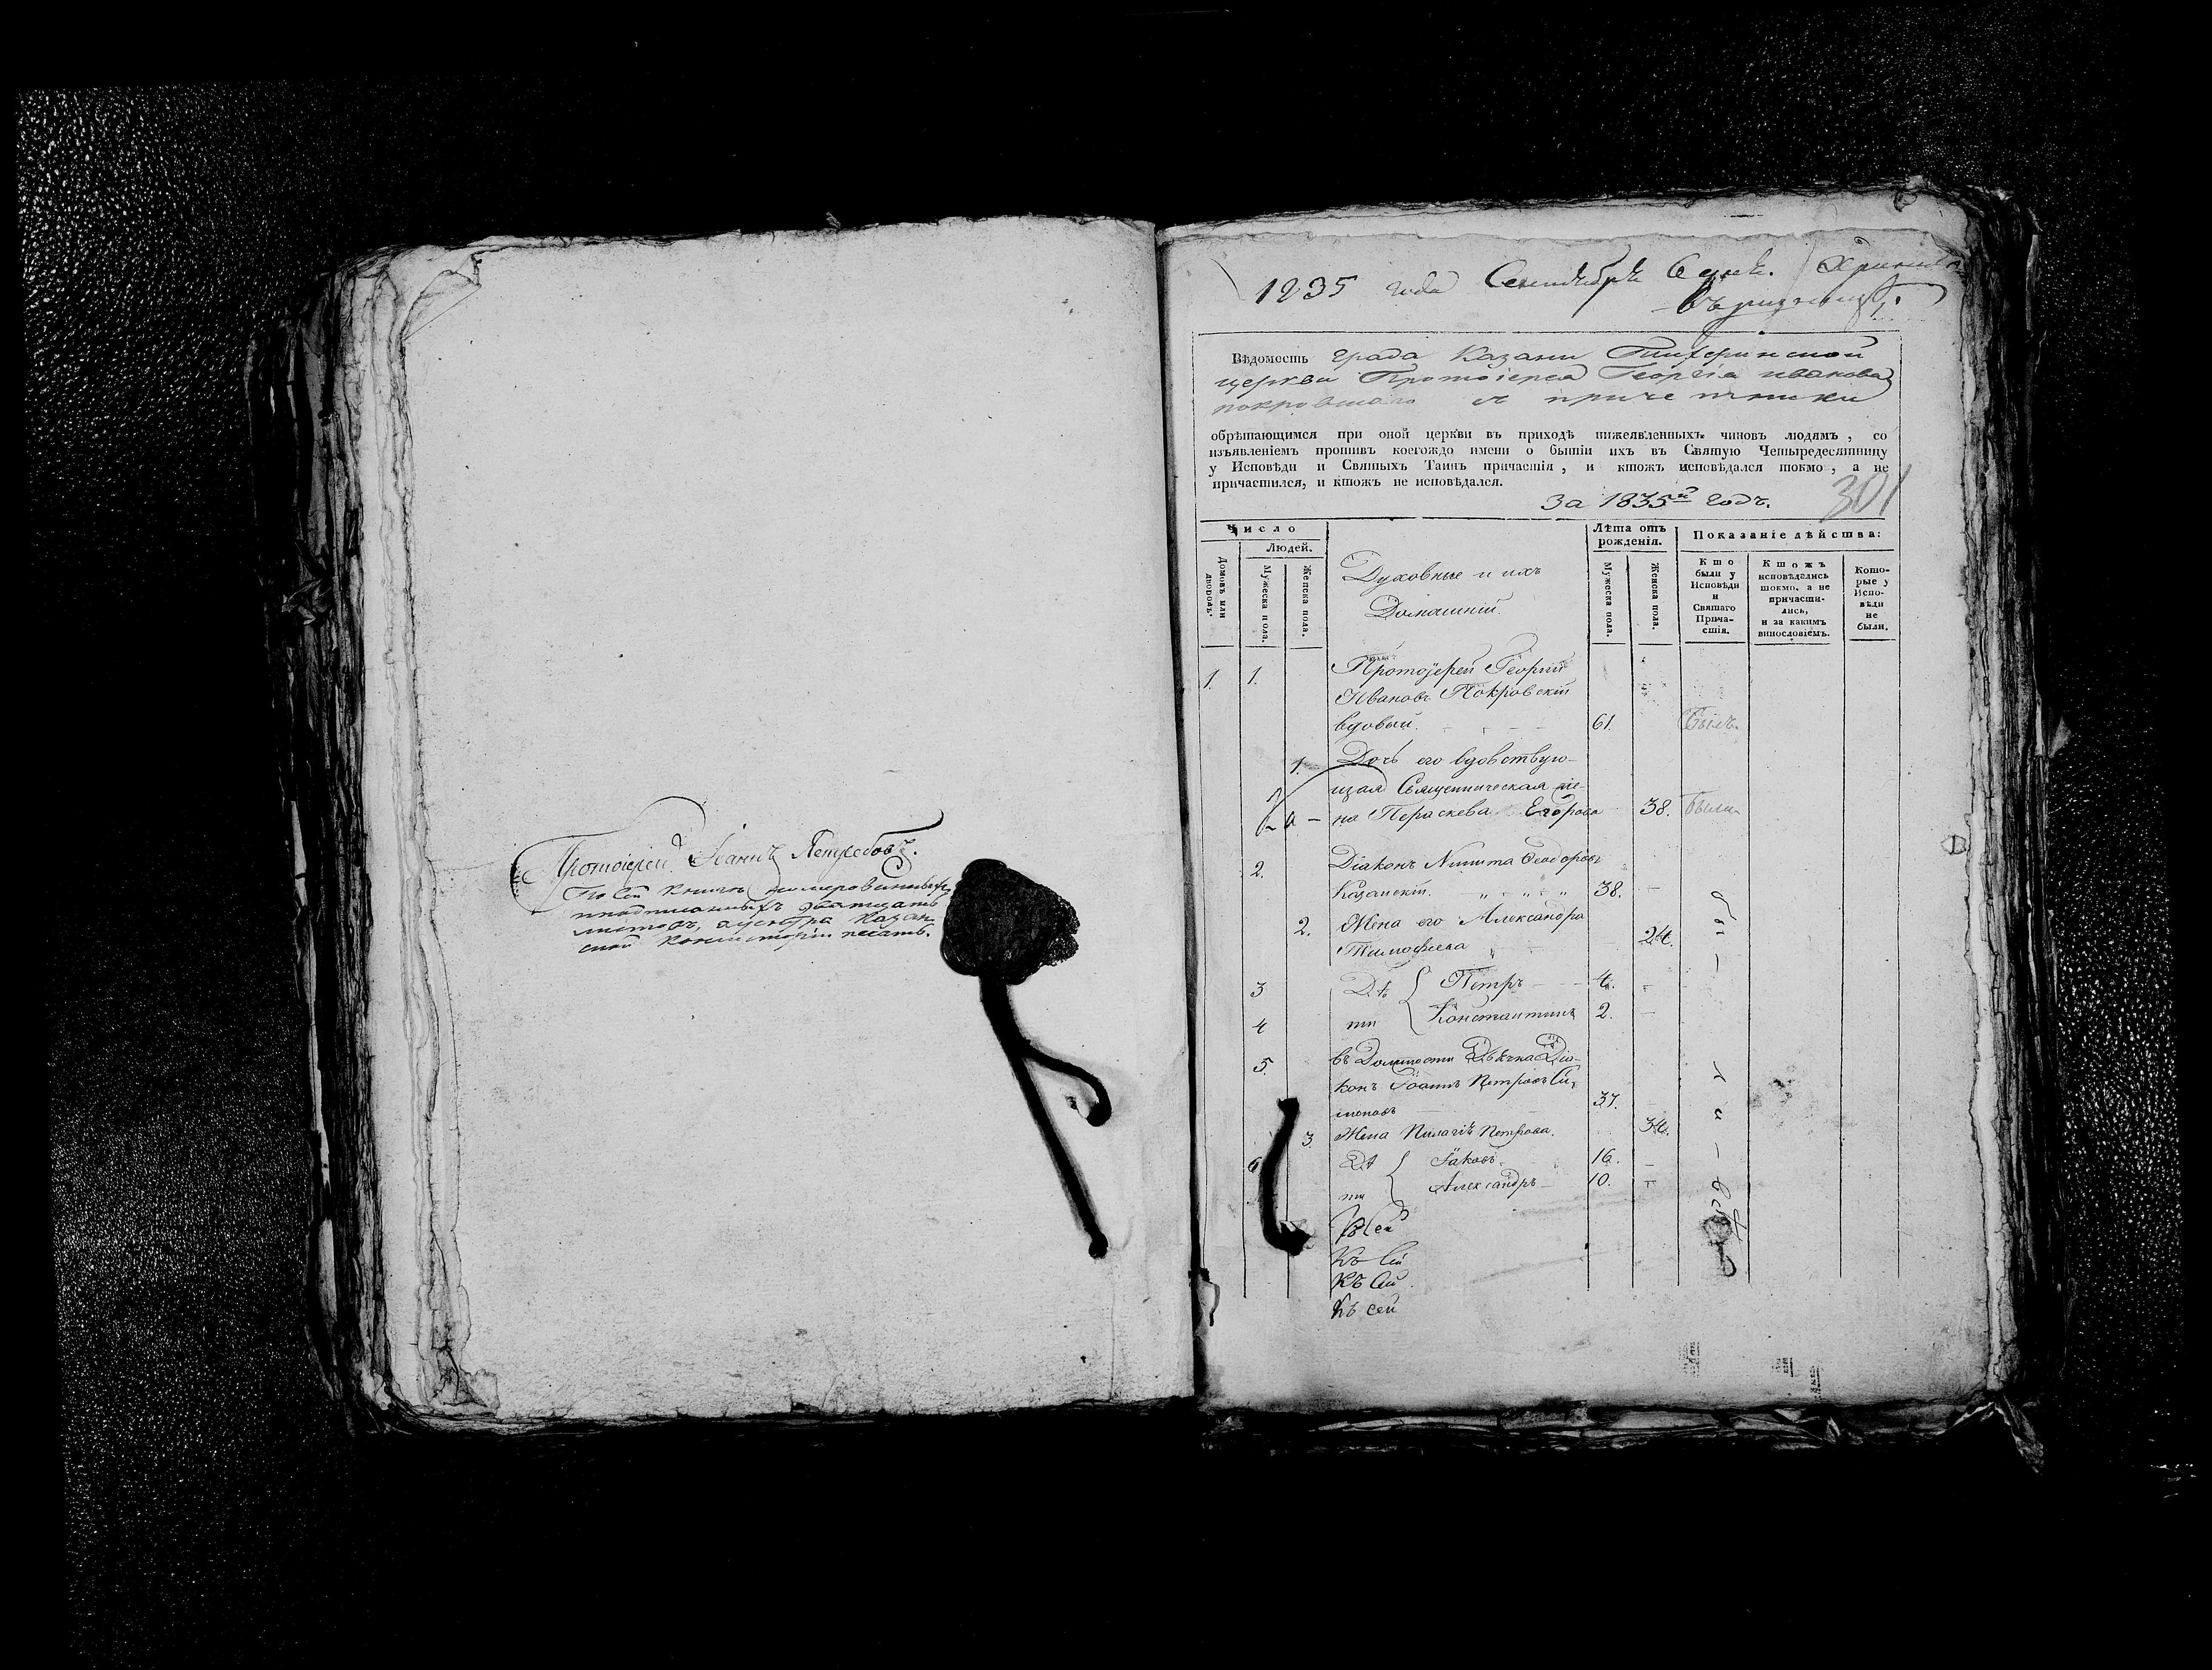 Протоіерей Іоаннъ
По сей книгѣ нумерованныхъ
листовъ, а у снура Казан-
ской Консисторіи печать.
1835 года Сентября 6 дня.
Вѣдомость града Казани Пихтеринской
церкви Протоіерея Георгія Иванова
покровскаго и причетники
обрѣтающимся при оной церкви въ приходѣ нижеявленныхъ чиновъ людямъ, со
изъявленіемъ противъ коегождо имени о бытіи ихъ въ Святую Четыредесятницу
у Исповѣди и Святыхъ Таинъ причастія, и ктожъ исповѣдался токмо, а не
причастился, и ктожъ не исповѣдался.
За 1835й Годъ. 301
Число
Людей.
Домовъ или дворовъ.
Мужеска пола.
Женска пола.
Духовные и ихъ
Домашніи.
Лѣта отъ
рожденія.
Мужеска пола.
Женска пола.
Показаніе дѣйства:
Кто
были у
Исповѣди
и
Святаго
Прича-
стія.
Ктожъ
исповѣдались
токмо, а не
причасти-
лись,
и за какимъ
винословіемъ.
Кото-
рые у
Испо-
вѣди
не
были.
1. 1. Протоіерей Георгій
Ивановъ Покровскій
вдовый. 61. Былъ.
1. Дочь его вдовствую-
щая Священническая же-
на Параскева Егорова 38. была
2. Діаконъ Никита Феодоровъ
Казанскій. 38.
2. Жена его Александра
Тимофеева 24.
3 Дѣ Петръ 4.
4 ти Константинъ 2.
5. въ Должности Дьячка Діа-
конъ Іоаннъ Петровъ
37.
3. Жена Пелагія Петрова. 34.
6 Дѣ Іаковъ 16.
ти Александръ 10.
Къ сей
Къ сей
Къ сей
Къ сей